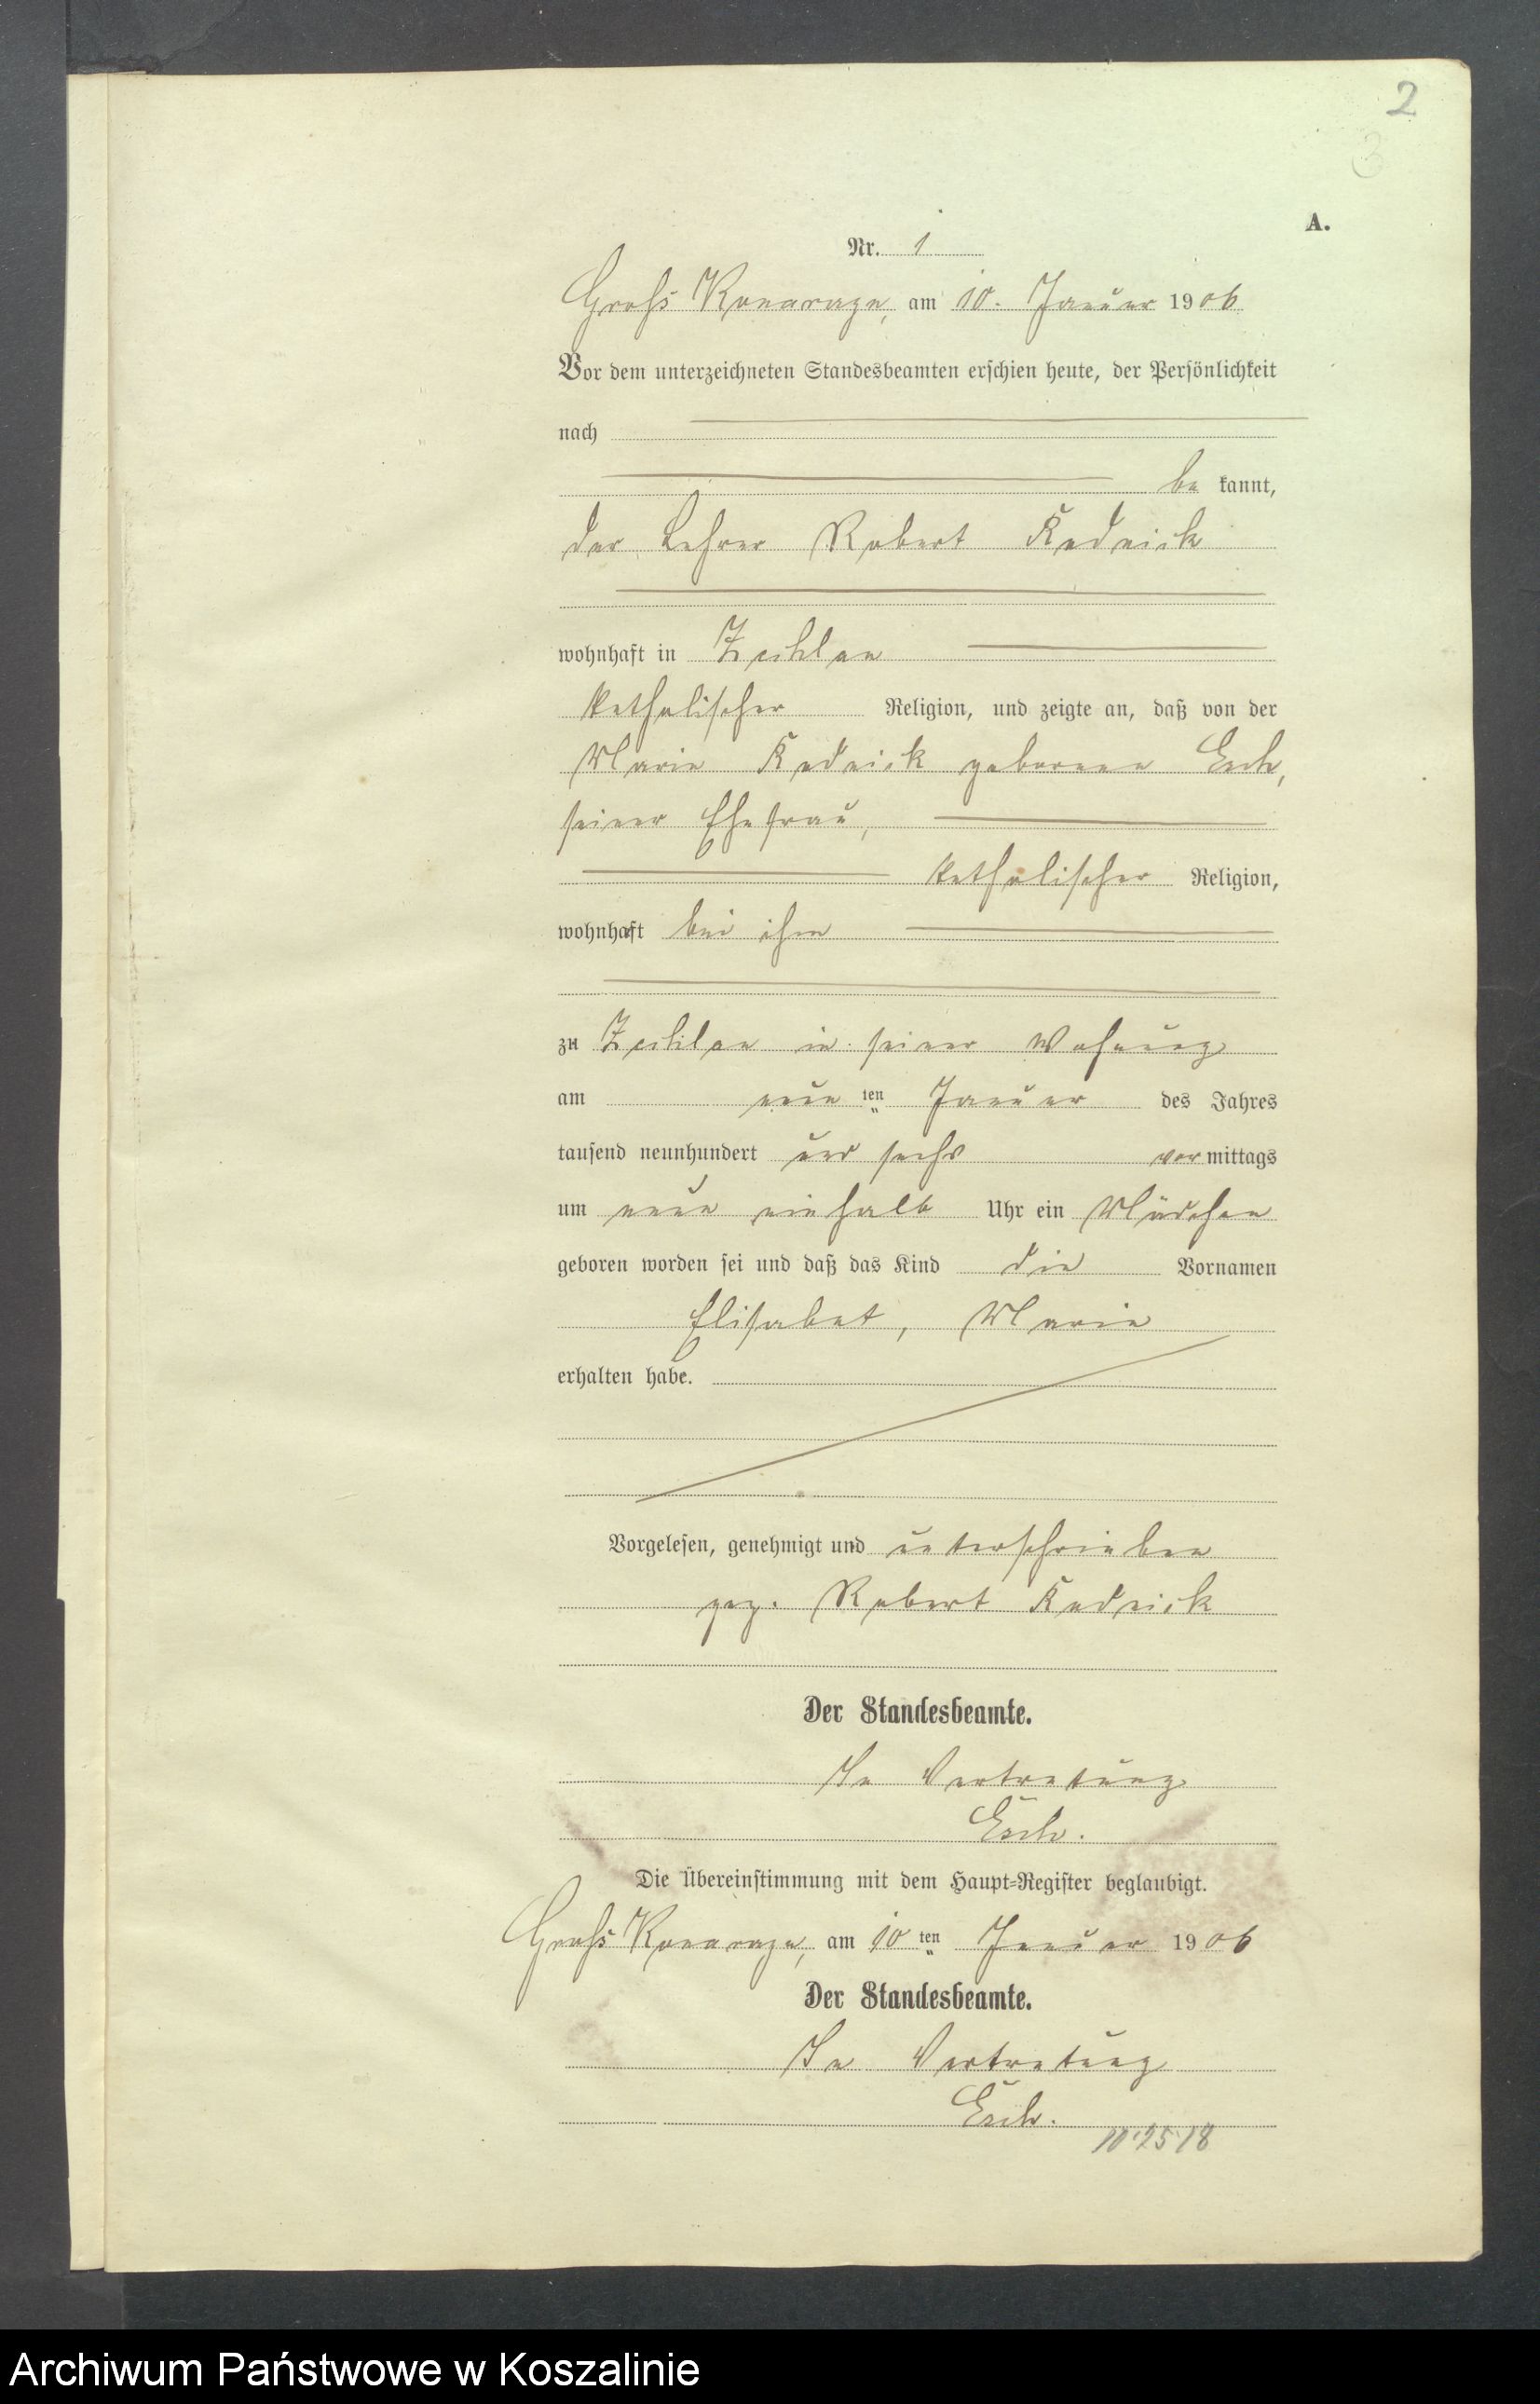 2
3
A.
Nr. 1
Groß Konarzyn, am 10. Januar 1906
Vor dem unterzeichneten Standesbeamten erschien heute, der Persönlichkeit
nach
be kannt,
der Lehrer Robert
wohnhaft in Zechlau
katholischer Religion, und zeigte an, daß von der
Marie geborenen Esch,
seiner Ehefrau,
katholischer Religion,
wohnhaft bei ihm
zu Zechlau in seiner Wohnung
am neun ten Januar des Jahres
tausend neunhundert und sechs vor mittags
um neun einhalb Uhr ein Mädchen
geboren worden sei und daß das Kind die Vornamen
Elisabet, Marie
erhalten habe.
Vorgelesen, genehmigt und unterschrieben
gez. Robert
Der Standesbeamte.
In Vertretung
Esch.
Die Übereinstimmung mit dem Haupt-Register beglaubigt.
Groß Konarzyn, am 10ten Januar 1906
Der Standesbeamte.
In Vertretung
Esch.
Archiwum Państwowe w Koszalinie